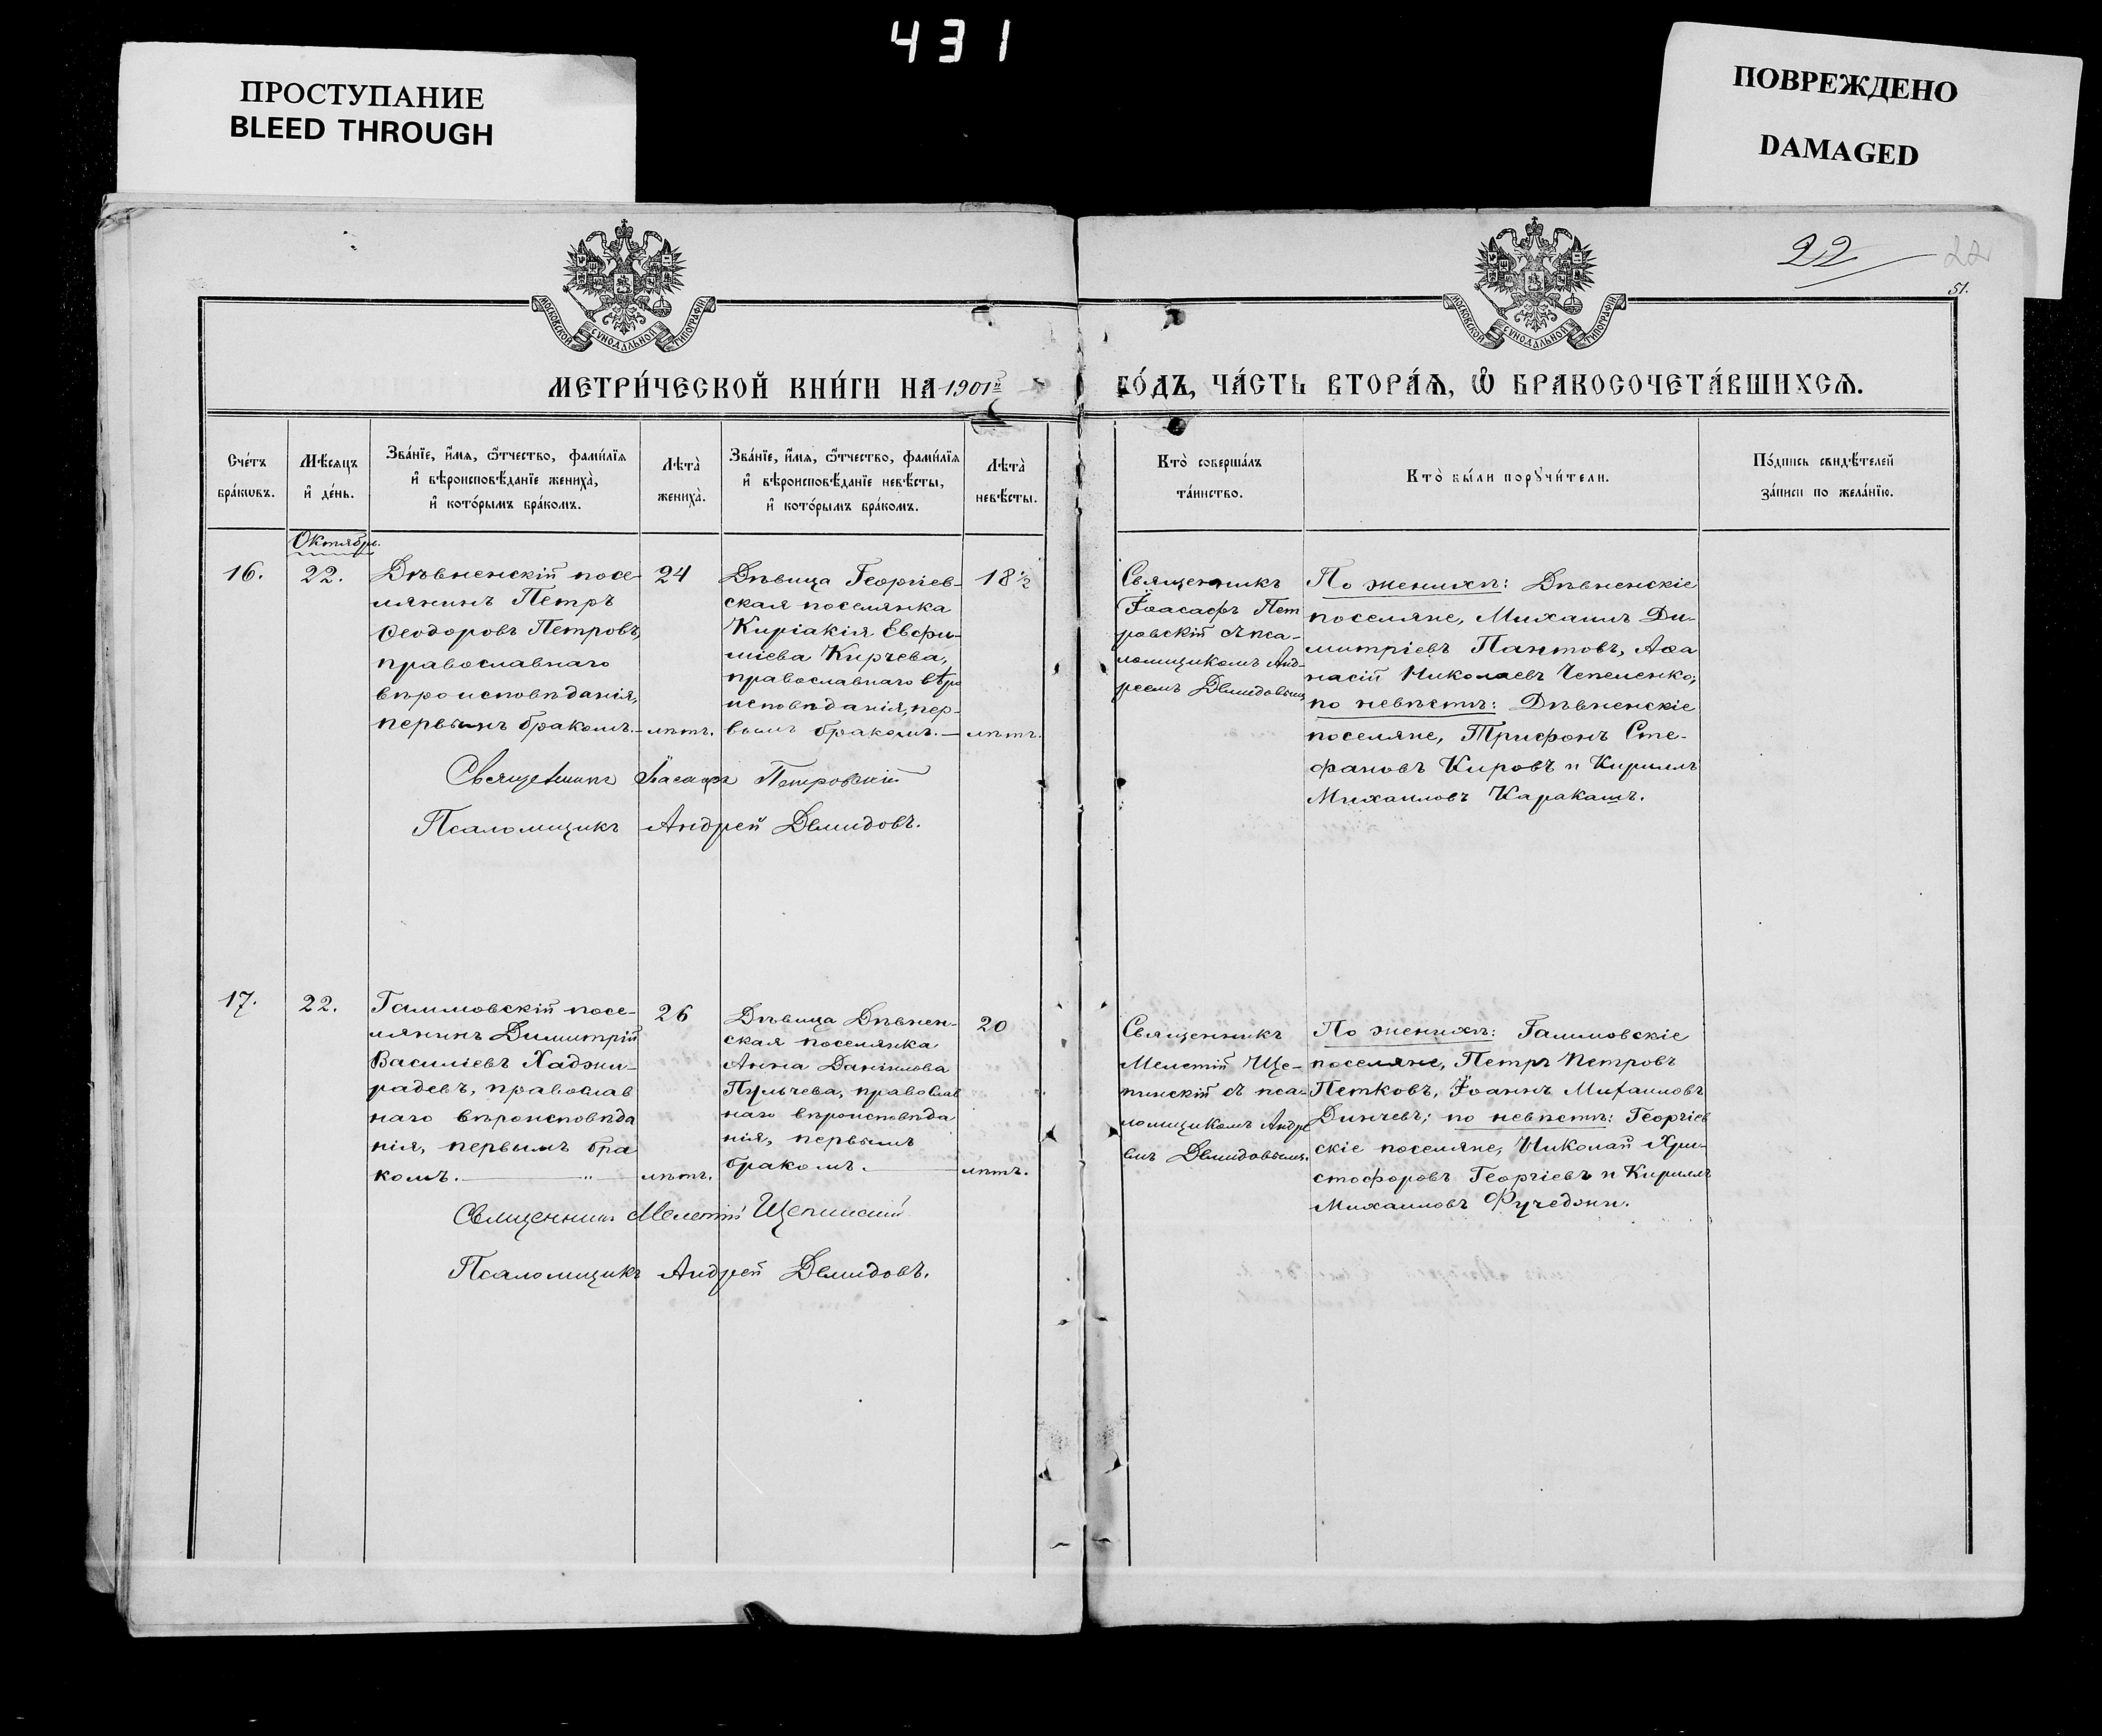 431
ПРОСТУПАНИЕ
BLEED THROUGH
ПОВРЕЖДЕНО
DAMAGED
22
22
51.
МОСКОВСКОЙ СѴНОДАЛЬНОЙ ТИПОГРАФІИ
МОСКОВСКОЙ СѴНОДАЛЬНОЙ ТИПОГРАФІИ
МЕТРИ́ЧЕСКОЙ КНИ́ГИ НА 1901й ГО́ДЪ, ЧА́СТЬ ВТОРА́Ѧ, Ѽ БРАКОСОЧЕТА́ВШИХСѦ.
Сче́тъ
бра́кѡвъ.
Мѣ́сѧцъ
и҆ де́нь.
Зва́нїе, и҆́мѧ, ѻ҆́тчество, фами́лїѧ
и҆ вѣроисповѣ́данїе жениха̀,
и҆ кото́рымъ бра́комъ.
Лѣта̀
жениха̀.
Зва́нїе, и҆́мѧ, ѻ҆́тчество, фами́лїѧ
и҆ вѣроисповѣ́данїе невѣ́сты,
и҆ кото́рымъ бра́комъ.
Лѣта̀
невѣ́сты.
Кто̀ соверша́лъ
та́инство.
Кто̀ бы́ли порꙋчи́тели.
По́дпись свидѣ́телей
за́писи по жела́нїю.
Октябрь.
16.
22.
Дѣвненскій посе-
лянинъ Петръ
Ѳеодоровъ Петровъ,
православнаго
вѣроисповѣданія,
первымъ бракомъ.-
24
лѣтъ.
Дѣвица Георгіев-
ская поселянка
Киріакія Евфи-
міева Кирчева,
православнаго вѣро
исповѣданія, пер-
вымъ бракомъ.—
18 ½
лѣтъ.
Священникъ
Іоасафъ Пет
ровскій съ пса-
ломщикомъ Анд-
реемъ Демидовымъ
По женихѣ: Дѣвненскіе
поселяне, Михаилъ Ди-
митріевъ Пантовъ, Аѳа
насій Николаевъ Чепеленко;
по невѣстѣ: Дѣвненскіе
поселяне, Трифонъ Сте-
фановъ Кировъ и Кириллъ
Михаиловъ Каракашъ.
Священникъ Іоасафъ Петровскій
Псаломщикъ Андрей Демидовъ.
17.
22.
Гаммовскій посе-
лянинъ Димитрій
Василіевъ Хаджи-
радевъ, православ
наго вѣроисповѣда
нія, первымъ бра
комъ.—
26
лѣтъ.
Дѣвица Дѣвнен-
ская поселянка
Анна Даніилова
Пульчева, православ
наго вѣроисповѣда
нія, первымъ
бракомъ.—
20
лѣтъ.
Священникъ
Мелетій Ще-
пинскій съ пса-
ломщикомъ Андре
емъ Демидовымъ.
По женихѣ: Гаммовскіе
поселяне, Петръ Петровъ
Петковъ, Іоаннъ Михаиловъ
Динчевъ; по невѣстѣ: Георгіев
скіе поселяне, Николай Хри-
стофоровъ Георгіевъ и Кириллъ
Михаиловъ Фучеджи.
Священникъ Мелетій Щепинскій
Псаломщикъ Андрей Демидовъ.